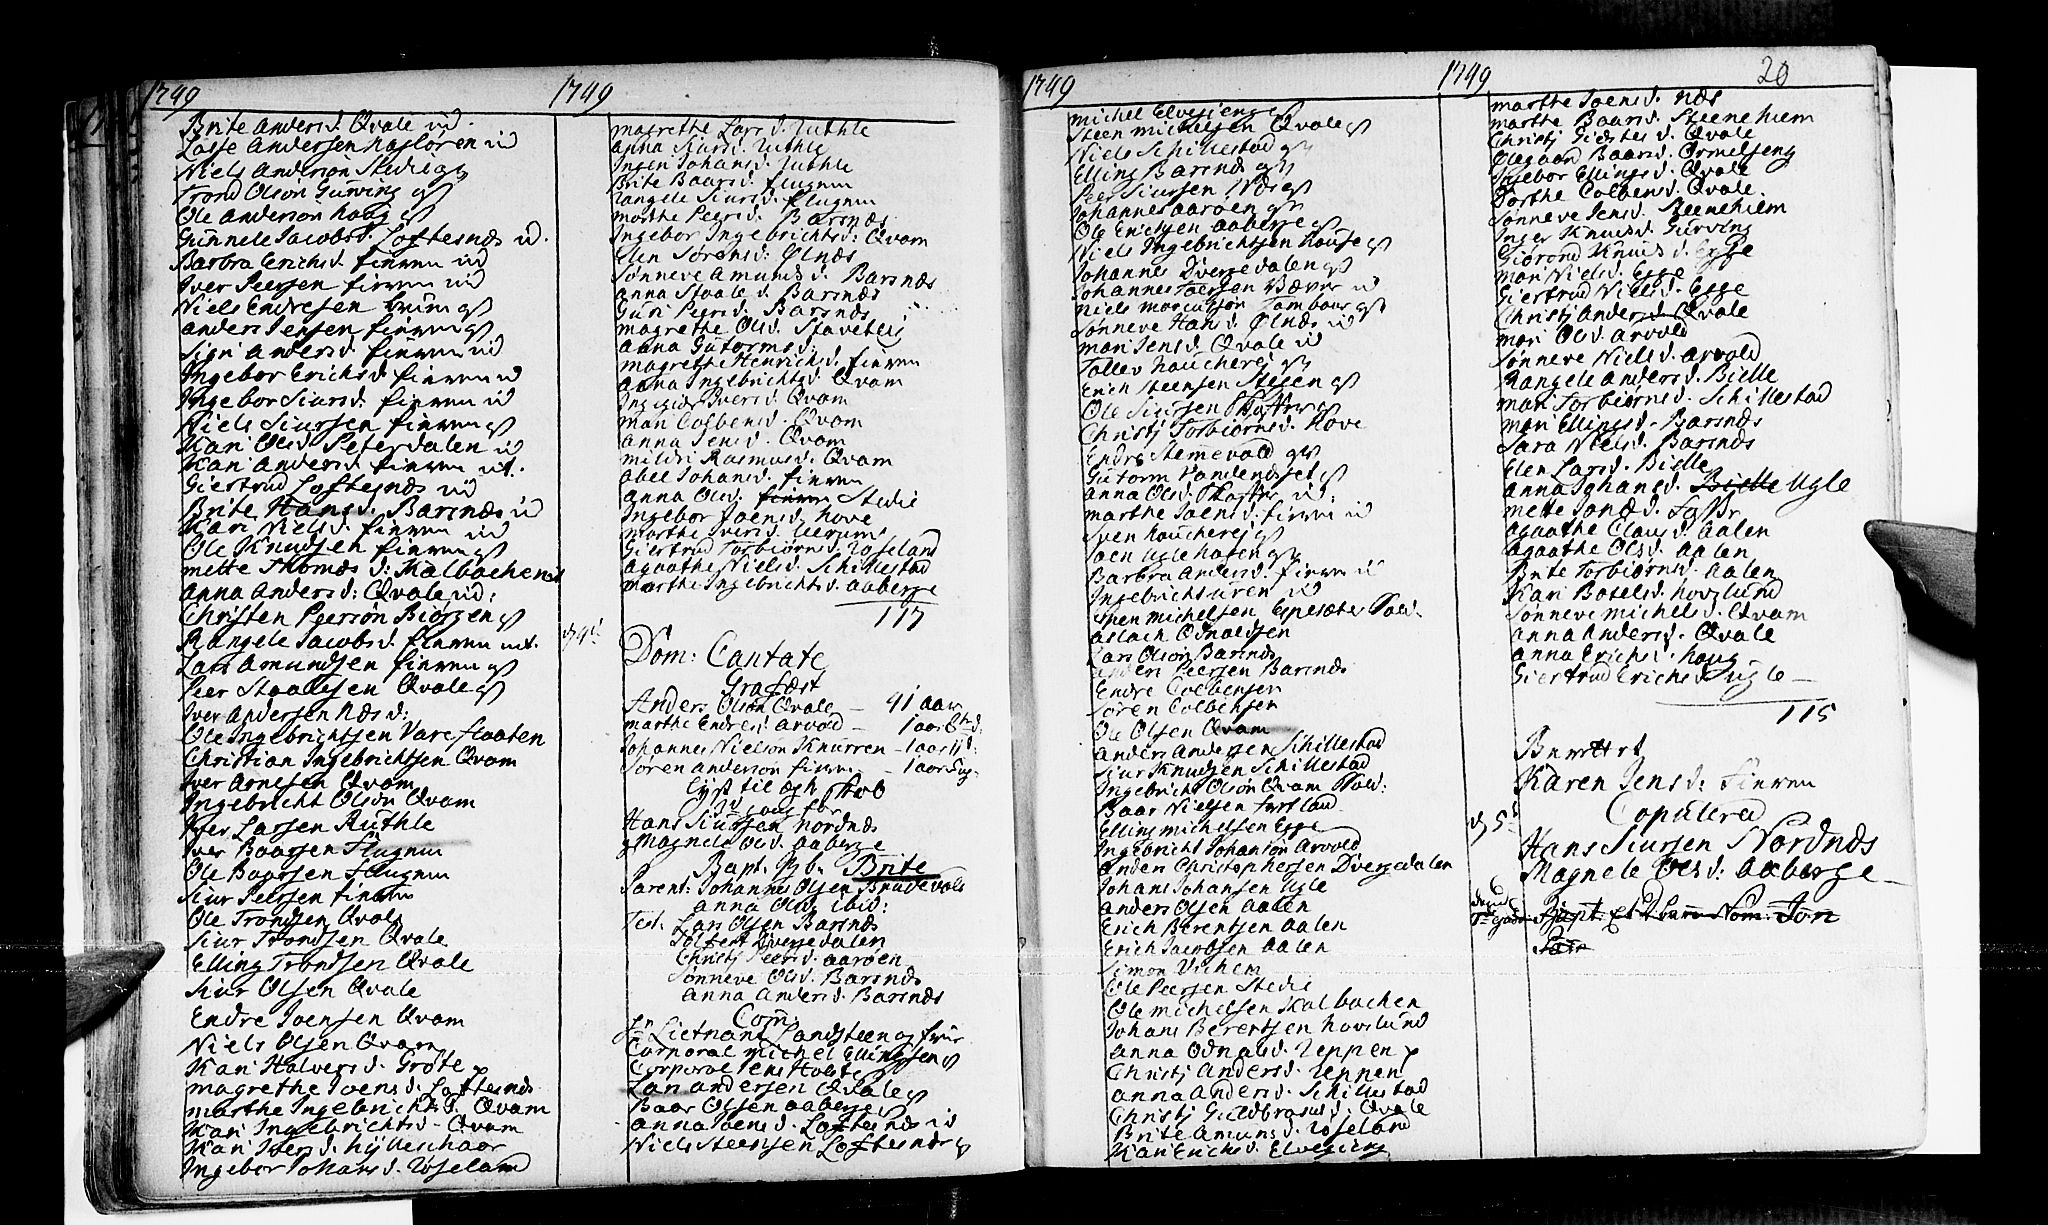 1749
Brite Anders d. Qvale ud.
Lasse Andersen Kasloren ud
Niels Anderson Stedie gg
Trond Olson Gurving gg
Ole Anderson Haug gg
Gunnele Jacobs d. Loftesnæs ud.
Barbra Erichs d. Finnen ud
Iver Peersen Finnen ud
Niels Endresen Grüm gg
Anders Jensen Finnen gg
Sigri Anders d. Finnen ud
Ingebor Erichs d. Finnen ud
Ingebor Siurs d: Finnen ud
Niels Siursen Finnen gg
Kari Ols d. Petersdalen ud
Kari Anders d. Finnen ud.
Giertrud Loftesnæs ud
Brite Hans d. Barsnæs ud
Kari Niels d. Finnen ud
Ole Knudsen Finnen gg
Mette Thomæs d: Kalbachen ud
Anna Anders d: Qvale ud:
Christen Peerson Biørgen gg
Rangele Jacobs d. Finnen ud.
Lars Amundsen Finnen gg
Peer Staalesen Qvale gg
Iver Andersen Næs d:
Ole Ingebrichtsen Vareflaaten
Christian Ingebrichtsen Qvam
Iver Arnesen Qvam
Ingebricht Olson Qvam
Peer Larsen Ruthle
Iver Baarsen Flugum
Ole Baarsen Flugum
Siur Peersen Finnen
Ole Trondsen Qvale
Siur Trondsen Qvale
Elling Trondsen Qvale
Siur Olsen Qvale
Endre Joensen Qvam
Niels Olsen Qvam
Kari Halvers d. Grøte
Magrethe Joens d. Loftesnæs
Marthe Ingebrichts d. Qvam
Kari Ingebrichts d. Qvam
Kari Ivers d. Hylleschaar
Ingebor Johans d. Røseland
1749
Magrethe Lars d. Ruthle
Anna Siurs d. Ruthle
Inger Johans d. Ruthle
Brite Baars d. Flugum
Rangele Siurs d. Flugum
Marthe Peers d. Barsnæs
Ingebor Ingebrichts d: Qvam
Elen Sørens d: Ølnæs
Sønneve Amunds d. Barsnæs
Anna Staale d. Barsnæs
Guri Peers d. Barsnæs
Magrethe Ols d. Stavelie
Anna Gutorms d:
Magrethe Henrichs d. Finnen
Anna Ingebrichts d. Qvam
Ingeborg Ivers d. Qvam
Mari Colbens d. Qvam
Anna Jens d. Qvam
Mildri Rasmus d. Qvam
Abel Johans d. Finnen
Anna Ols d. Finnen Stedie
Ingebor Joens d. Hove
Marthe Ivers d.
Giertrud Torbiørns d. Røseland
Agaathe Niels d. Schillestad
Marthe Ingebrichts d. Aaberge
117
Dom: Cantate
Grafæst
Anders Olson Qvale — 91 aar
Marthe Endres d. Arvold — 1 aar
Johannes Nielson Knurren — 1 aar
Søren Anderson Finnen — 1 aar
Lyst til ægteskab
Hans Siursen Nordnæs
Magnele Ols d. Aaberge
Bapt. Brite
Parent: Johannes Olsen Brudevold
Anna Ols d. ibid:
Test. Lars Olsen Barsnæs
Dvergedalen
Christj Peers d. Aarøen
Sønneve Ols d. Barsnæs
Anna Anders d. Barsnæs
Com:
Hr Lietnant Landsteen og frue
Corporal Michel Ellingsen gg
Corporal Jens Holste
Lars Andersen Qvale gg
Baar Olsen Aaberge gg
Anna Joens d. Loftesnæs ud
Niels Steensen Loftesnæs gg
1749
Michel Elvegienge
Steen Michelsen Qvale gg
Niels Schillestad gg
Elling Barsnæs gg
Peer Siursen Næs gg
Johannes Aarøen gg
Ole Erichsen Aaberge gg
Niels Ingebrichtsen House gg
Johannes Dvergedalen gg
Johannes Toersen Bæver ud
Niels Marcusson Tambour gg
Sønneve Hans d. Ølnæs ud
Mari Jens d. Qvale ud
Tollev Houcherej gg
Erich Steensen Stegen gg
Ole Siursen Skatter gg
Christj Torbiørns d. Hove
Endre Stennevold gg
Gutorm Vandendset gg
Anna Ols d. Skatter ud:
Marthe Joens d. Finnen ud
Sven Houcherej gg
Joen Uglehagen gg
Barbra Anders d. Finnen ud
Ingebricht uren ud
Espen Michelsen Espesæter
Aslach Odnaldsen
Lars Olson Barsnæs
Anders Peersen Barsnæs
Endre Colbensen
Søren Colbensen
Ole Olsen Qvam
Anders Andersen Schillestad
Siur Knudsen Schillestad
Ingebricht Olson Qvam
Baar Nielsen
Elling Michelsen Egge
Ingebricht Johanson Arvold
Anders Christophersen Dvergedalen
Johans Johansen Ugle
Anders Olsen Aalen
Erich Berentsen Aalen
Erich Jacobsen Aalen
Simon Vichem
Ole Peersen Stedie
Ole Michelsen Kalbachen
Johans Berentsen Hovslund
Anna Odnals d. Reppen
Christj Anders d. Reppen
Anna Anders d. Schillestad
Christj Guldbrans d: Qvale
Brite Amuns d. Røseland
Kari Erichs d. Elvegieng
1749 20
Marthe Joens d. Næs
Marthe Baars d. Steenehiem
Christj d. Qvale
Olegaard Baars d. Ormelseng
Ingebor Ellings d. Qvale
Dorthe Colbens d. Qvale.
Sønneve Jens d. Steenehiem
Inger Knuds d. Gurving
Gudrond Knuds d. Egge
Mari Niels d. Egge
Giertrud Niels d. Egge
Christj Anders d. Qvale
Mari Ols d. Arvold
Sønneve Niels d. Arvold
Rangele Anders d. Bielle
Mari Torbiørns d. Schillestad
Mari Ellings d. Barsnæs
Sara Niels d. Barsnæs
Elen Lars d. Bielle
Anna Johans d. Bielle Ugle
Mette Jonæ d.
Agaathe Claus d. Aalen
Agaathe Ols d. Aalen
Brite Torbiørns d. Aalen
Kari Botels d. Hovslund
Sønneve Michels d. Qvam
Anna Anders d. Qvale
Anna Erichs d. Haug
Giertrud Erichs d. Ugle —
115
Karen Jens d: Finnen
Copulered
Hans Siursen Nordnæs
Magnele Ols d: Aaberge
Bapt. Nom. Jon